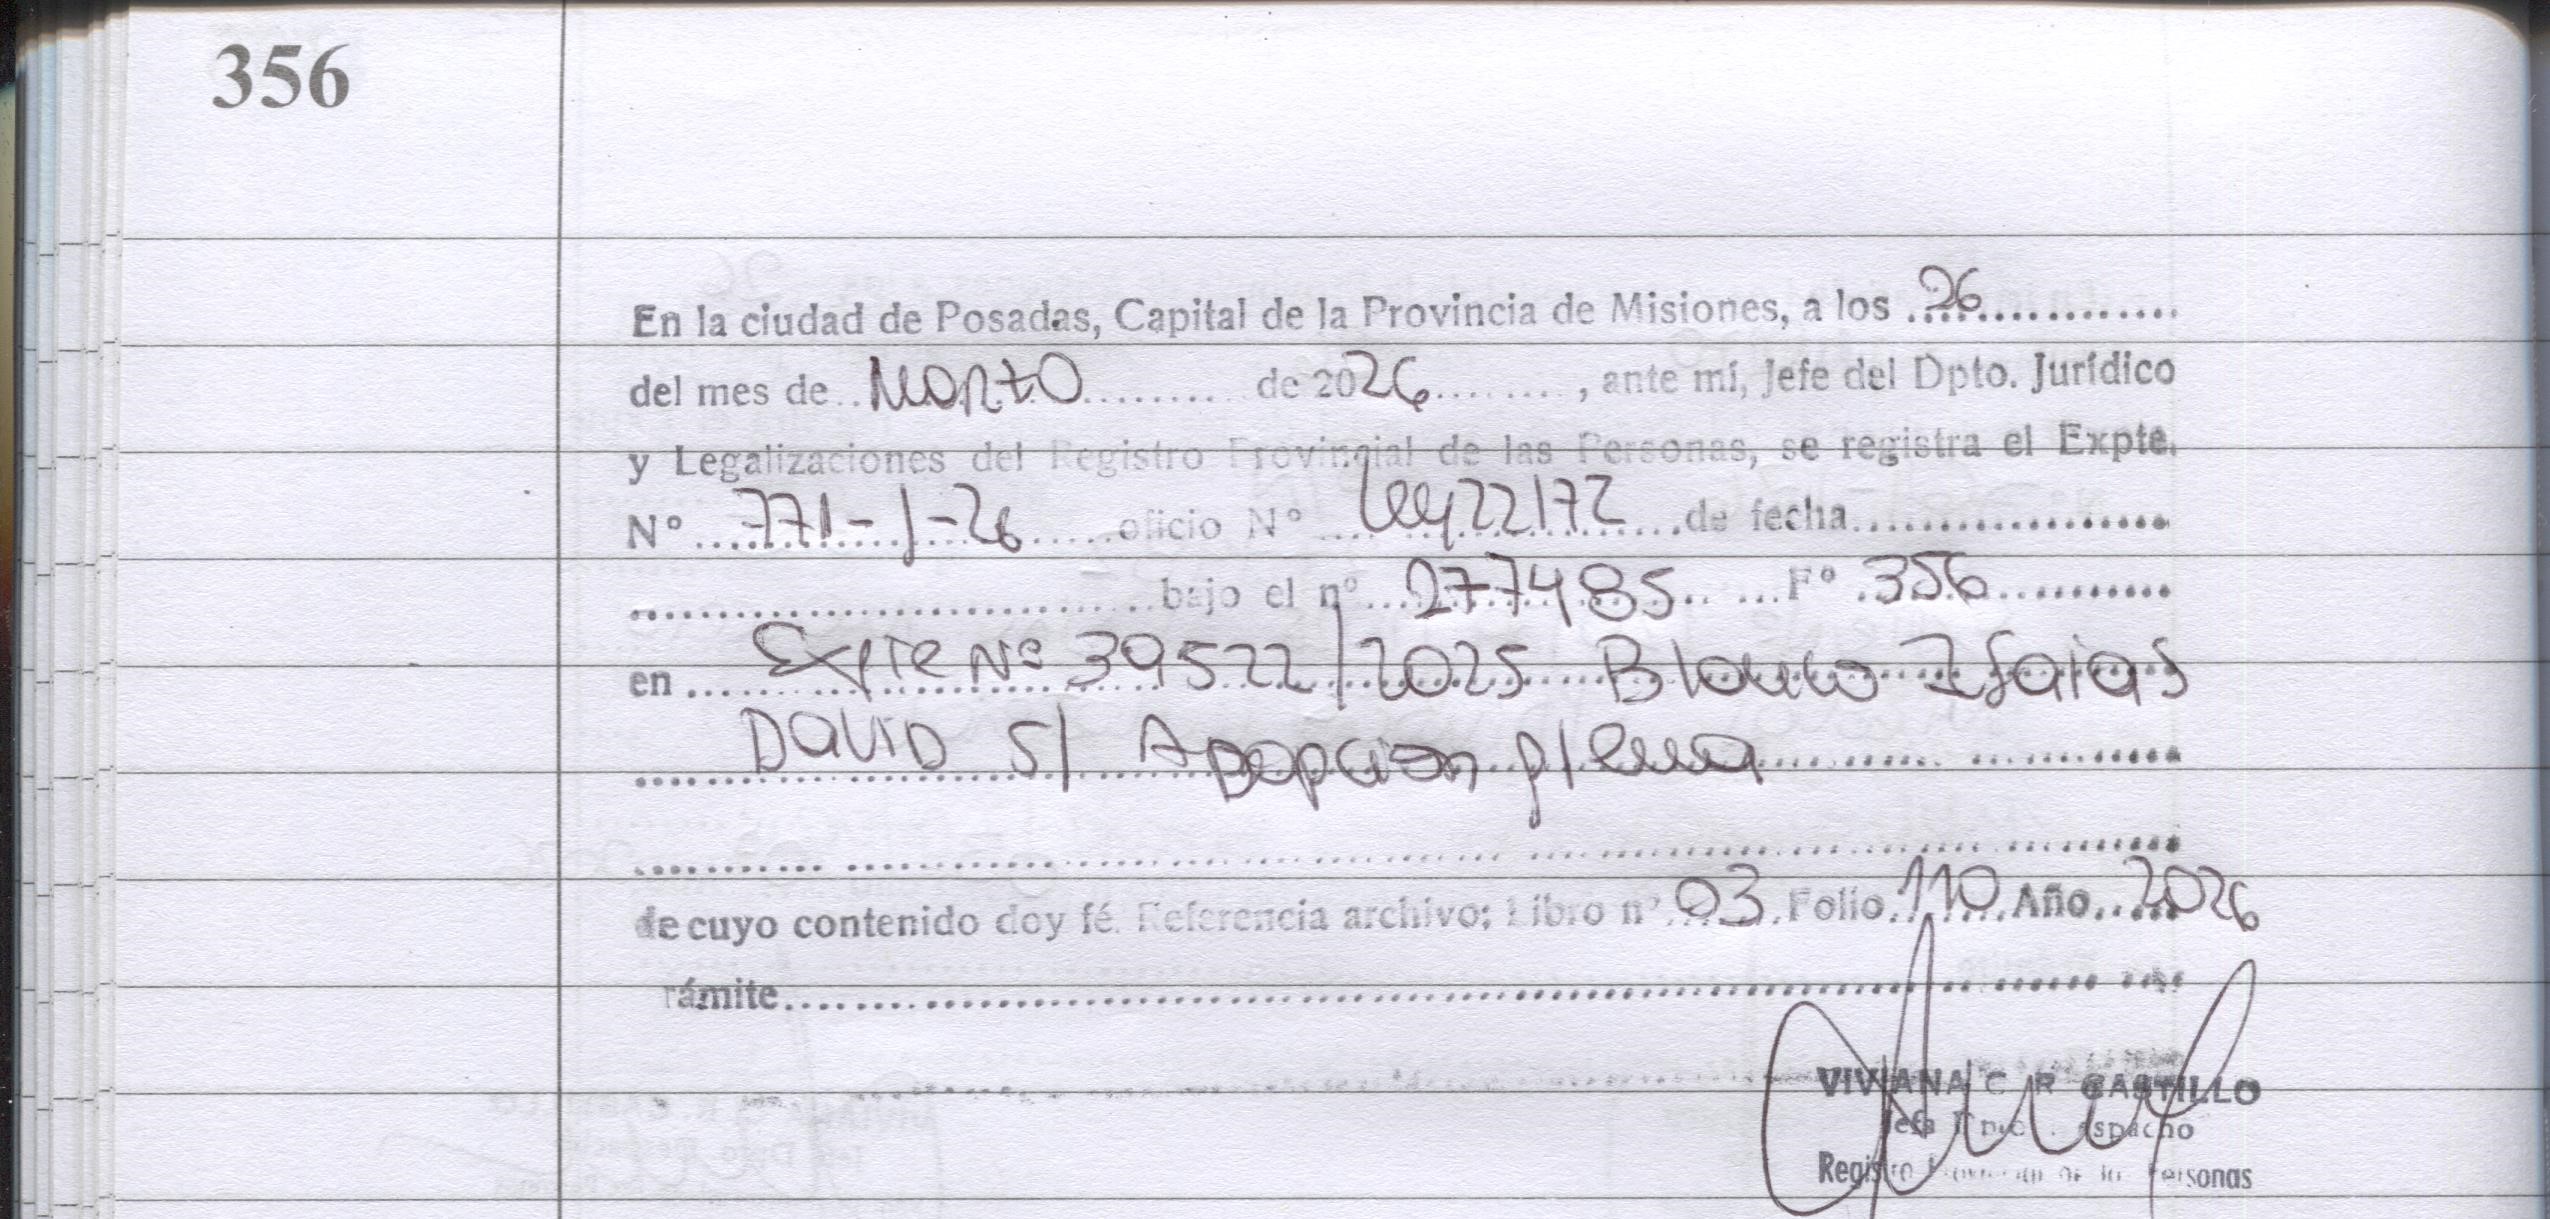 356
En la ciudad de Posadas, Capital de la Provincia de Misiones, a los 26
del mes de Marzo de 2026, ante mí, Jefe del Dpto. Jurídico
y Legalizaciones del Registro Provincial de las Personas, se registra el Expte.
Nº 771-J-26 oficio Nº Ley 22172 de fecha
bajo el nº 277485 Fº 356
en Expte Nº 39522/2025 Blanco Isaias
David S/ Adopcion plena
de cuyo contenido doy fé. Referencia archivo; Libro nº 03 Folio 110 Año 2026
rámite
VIVIANA C R CASTILLO
Jefa Dpto. Despacho
Registro Provincial de las Personas